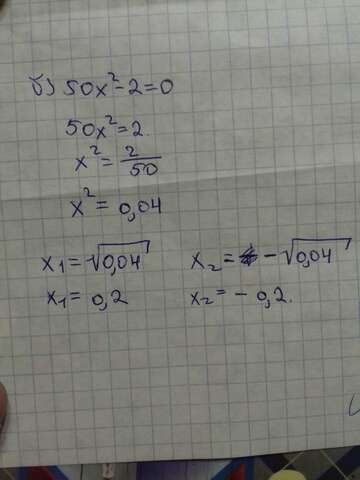 б) 50x² - 2 = 0
50x² = 2.
x² = 2/50
x² = 0,04
x₁ = √0,04 x₂ = - √0,04
x₁ = 0,2 x₂ = - 0,2.